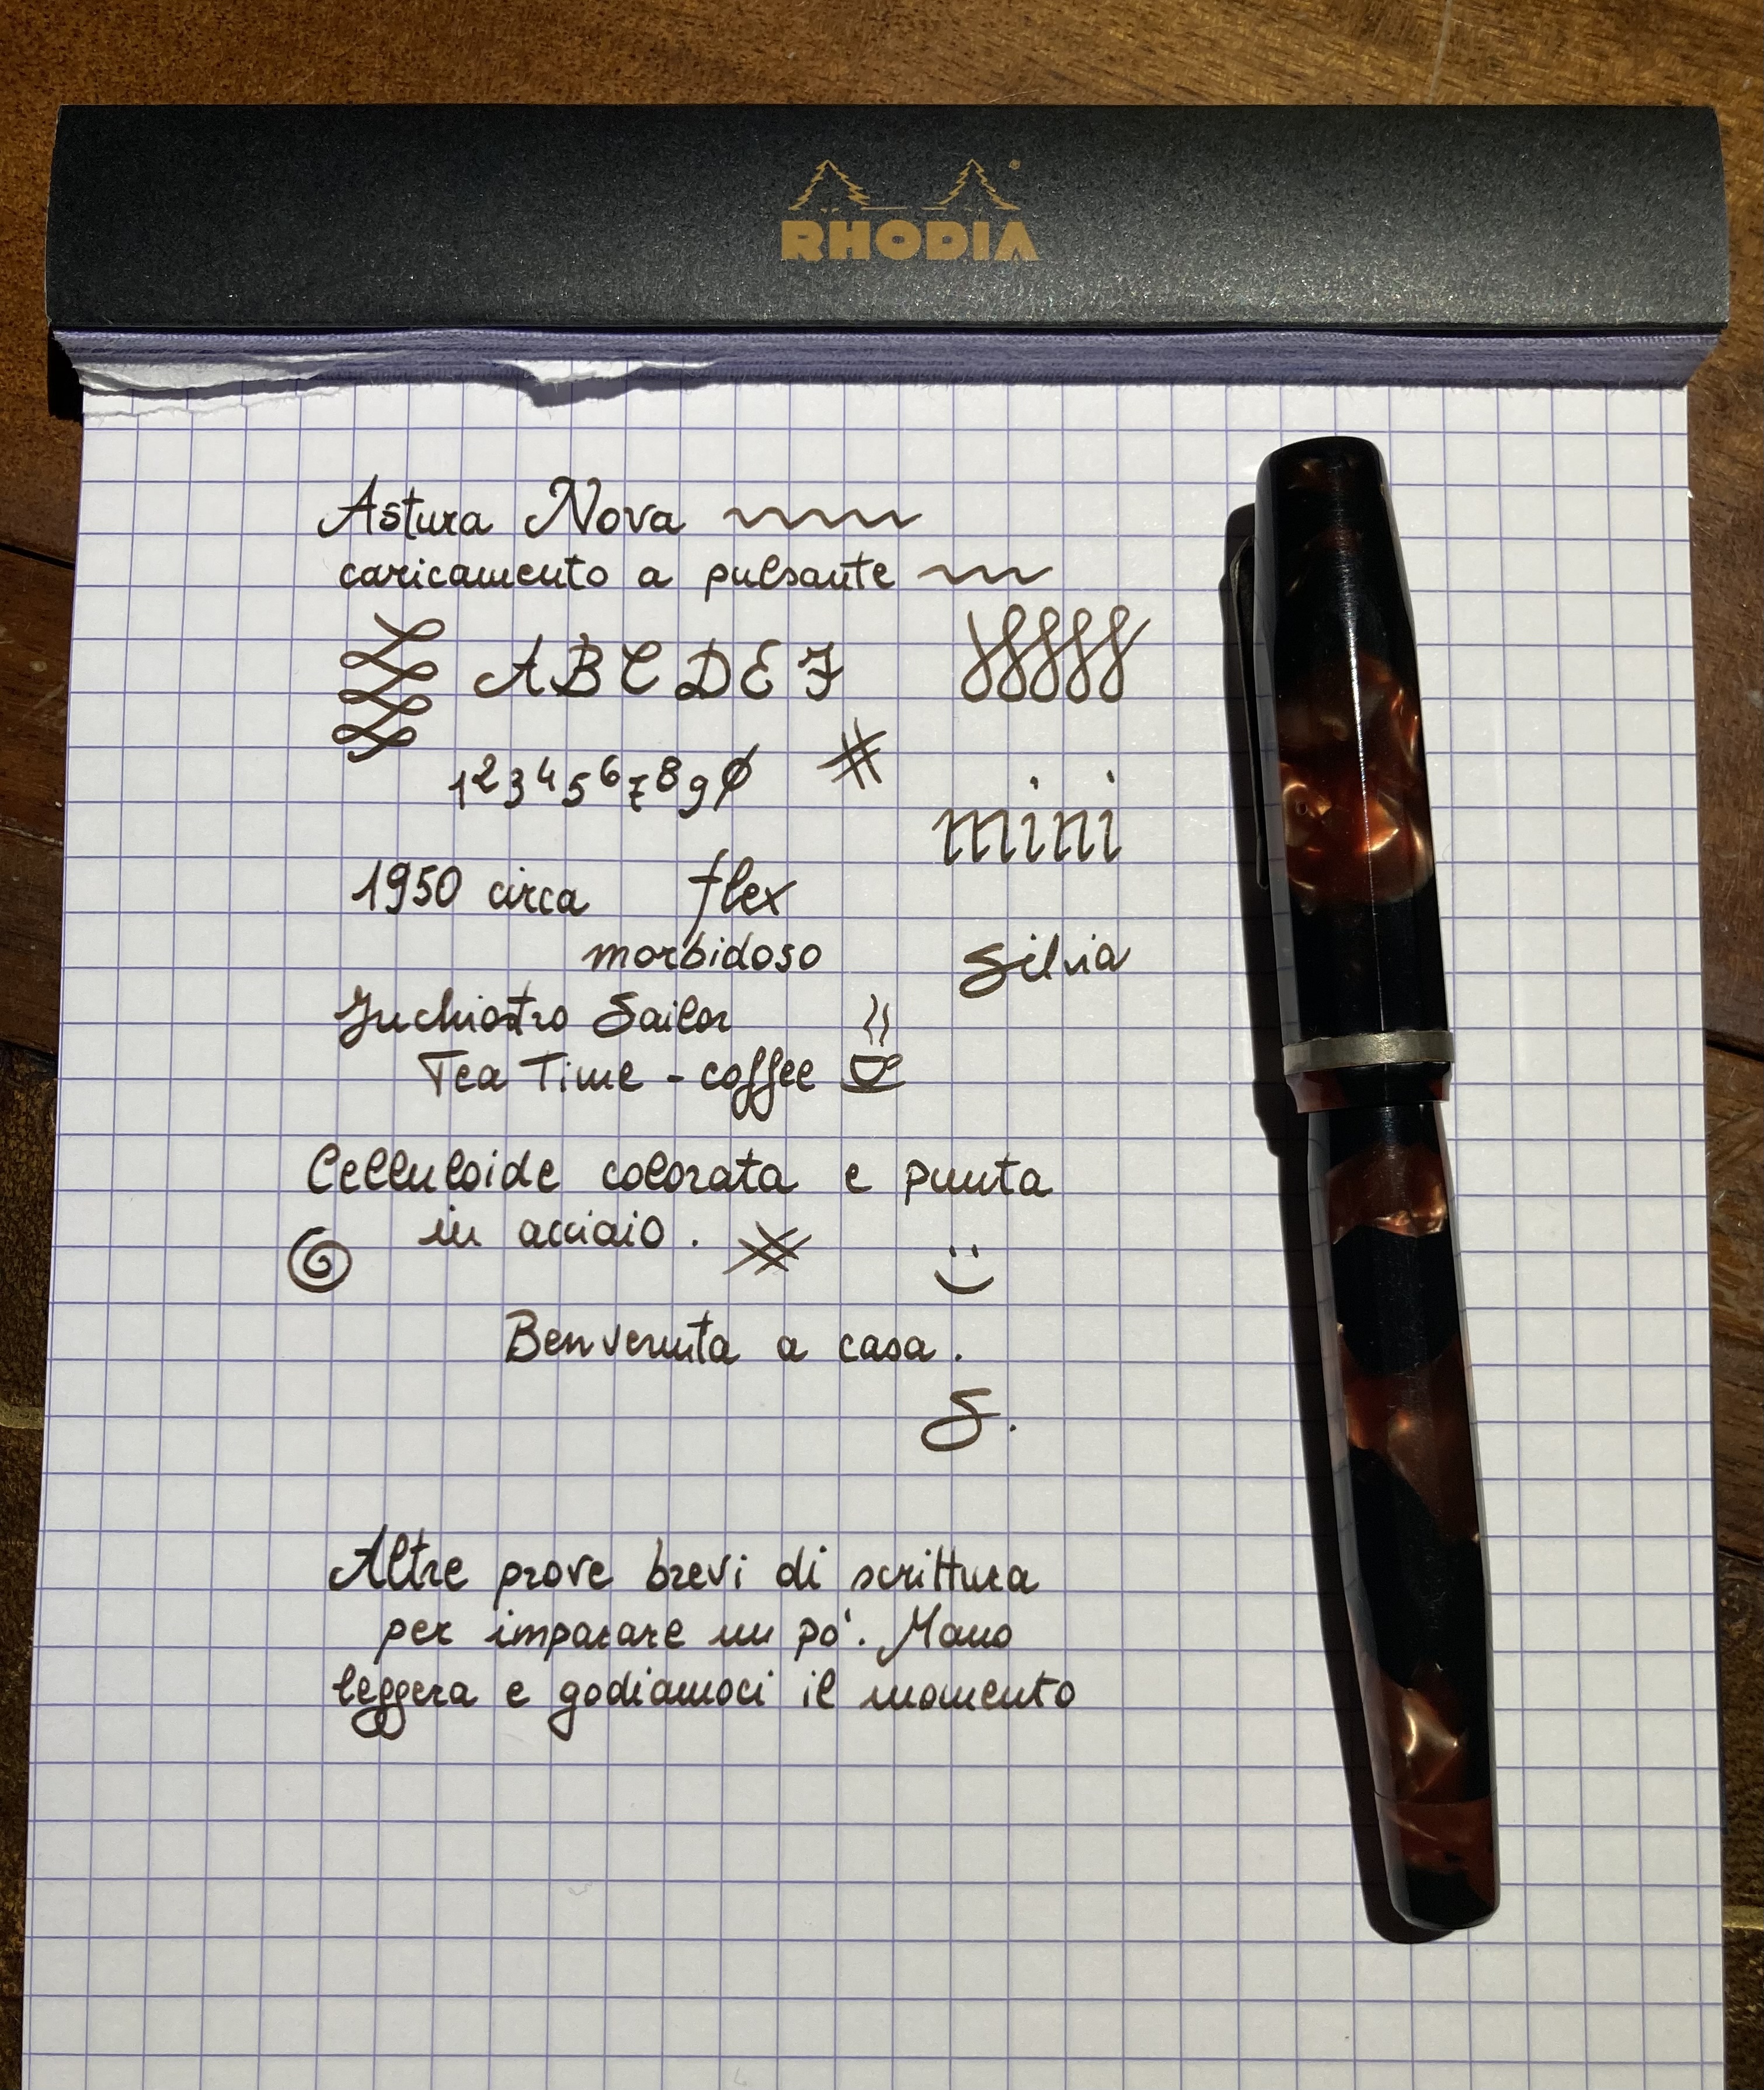 RHODIA
Astura Nova
caricamento a pulsante
A B C D E F
1234567890
mini
1950 circa flex
morbidoso
Silvia
Inchiostro Sailor
Tea Time - coffee
Celluloide colorata e punta
in acciaio.
Benvenuta a casa.
S.
Altre prove brevi di scrittura
per imparare un po'. Mano
leggera e godiamoci il momento